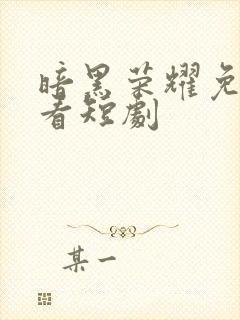 暗黑荣耀免
看短劇
某一